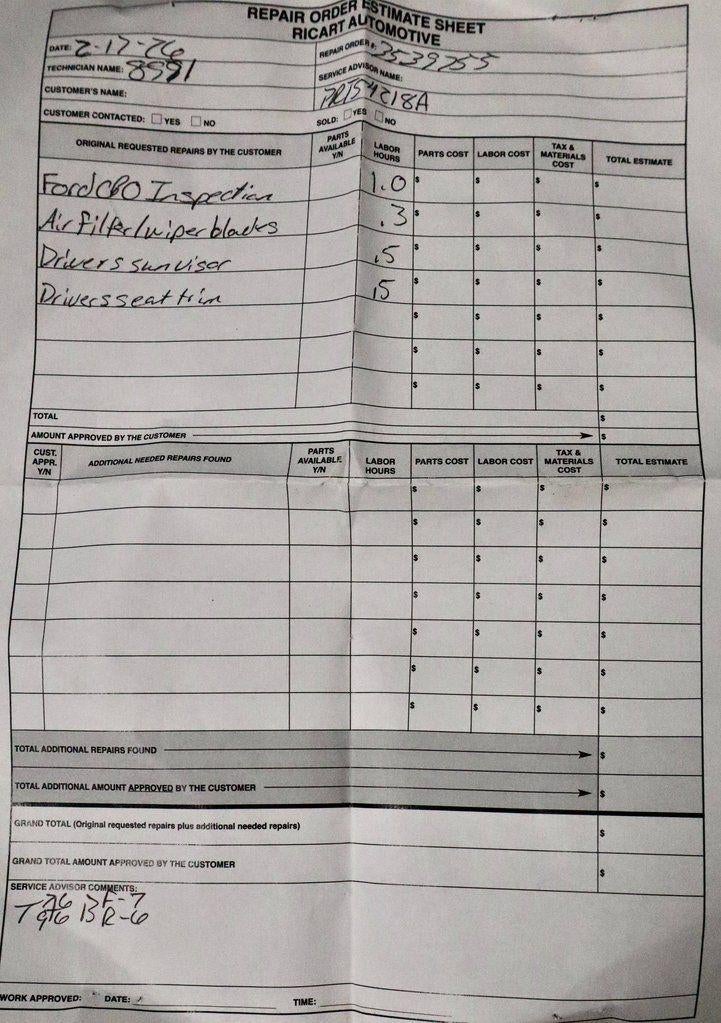 REPAIR ORDER ESTIMATE SHEET
RICART AUTOMOTIVE
DATE: 2-17-26 REPAIR ORDER #: 3539755
TECHNICIAN NAME: 8991 SERVICE ADVISOR NAME:
CUSTOMER'S NAME: PRT54218A
CUSTOMER CONTACTED: YES NO SOLD: YES NO
ORIGINAL REQUESTED REPAIRS BY THE CUSTOMER PARTS AVAILABLE Y/N LABOR HOURS PARTS COST LABOR COST TAX & MATERIALS COST TOTAL ESTIMATE
Ford CPO Inspection 1.0 $ $ $ $
Air filter/wiper blades .3 $ $ $ $
Drivers sun visor .5 $ $ $ $
Drivers seat trim .5 $ $ $ $
$ $ $ $
$ $ $ $
$ $ $ $
TOTAL $
AMOUNT APPROVED BY THE CUSTOMER $
CUST. APPR. Y/N ADDITIONAL NEEDED REPAIRS FOUND PARTS AVAILABLE Y/N LABOR HOURS PARTS COST LABOR COST TAX & MATERIALS COST TOTAL ESTIMATE
$ $ $ $
$ $ $ $
$ $ $ $
$ $ $ $
$ $ $ $
$ $ $ $
$ $ $ $
TOTAL ADDITIONAL REPAIRS FOUND $
TOTAL ADDITIONAL AMOUNT APPROVED BY THE CUSTOMER $
GRAND TOTAL (Original requested repairs plus additional needed repairs) $
GRAND TOTAL AMOUNT APPROVED BY THE CUSTOMER $
SERVICE ADVISOR COMMENTS:
T B F-7
R-6
WORK APPROVED: DATE: TIME: